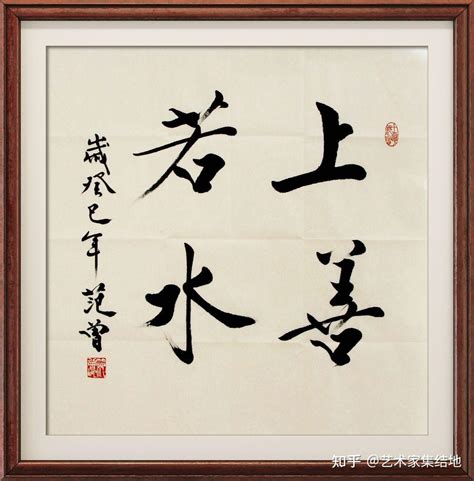 上善
若水
歲癸巳年 范曾
知乎 @艺术家集结地